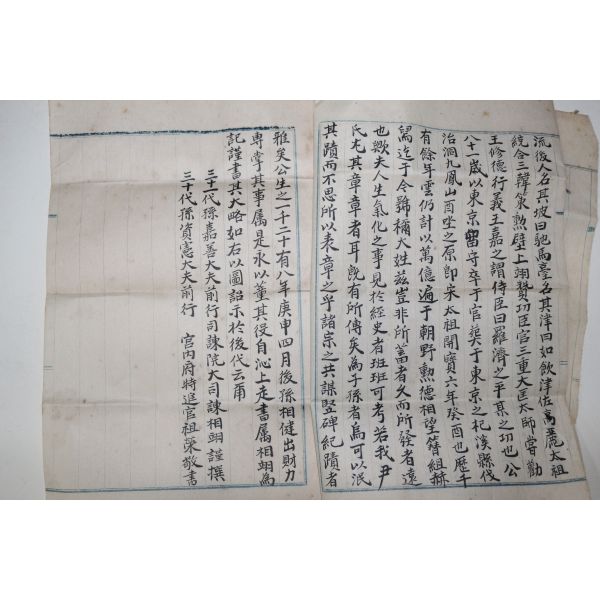 流後人名其坡曰馳馬臺名其津曰如飮津佐高麗太祖
統合三韓策勲壁上翊贊功臣官三重大匡太師嘗勸
王修德行義王嘉之謂侍臣曰羅濟之平某之功也公
八十一歲以東京留守卒于官葬于東京之杞溪縣伐
治洞九鳳山酉坐之原卽宋太祖開寶六年癸酉也歷千
有餘年雲仍計以萬億遍于朝野勲德相望簪組赫
舃迄于今號稱大姓玆豈非所蓄者久而所發者遠
也歟夫人生氣化之事見於經史者班班可考若我尹
氏尤其章章者耳旣有所傳矣為子孫者焉可以泯
其蹟而不思所以表章之乎諸宗之共謀竪碑紀蹟者
雅矣公生之一千二十有八年庚申四月後孫相健出財力
専掌其事属是永以董其役自沁上走書属相翊為
記謹書其大略如右以圖詔示於後代云爾
三十代孫嘉善大夫前行司諫院大司諫相翊謹撰
三十代孫資憲大夫前行 宮内府特進官祖榮敬書